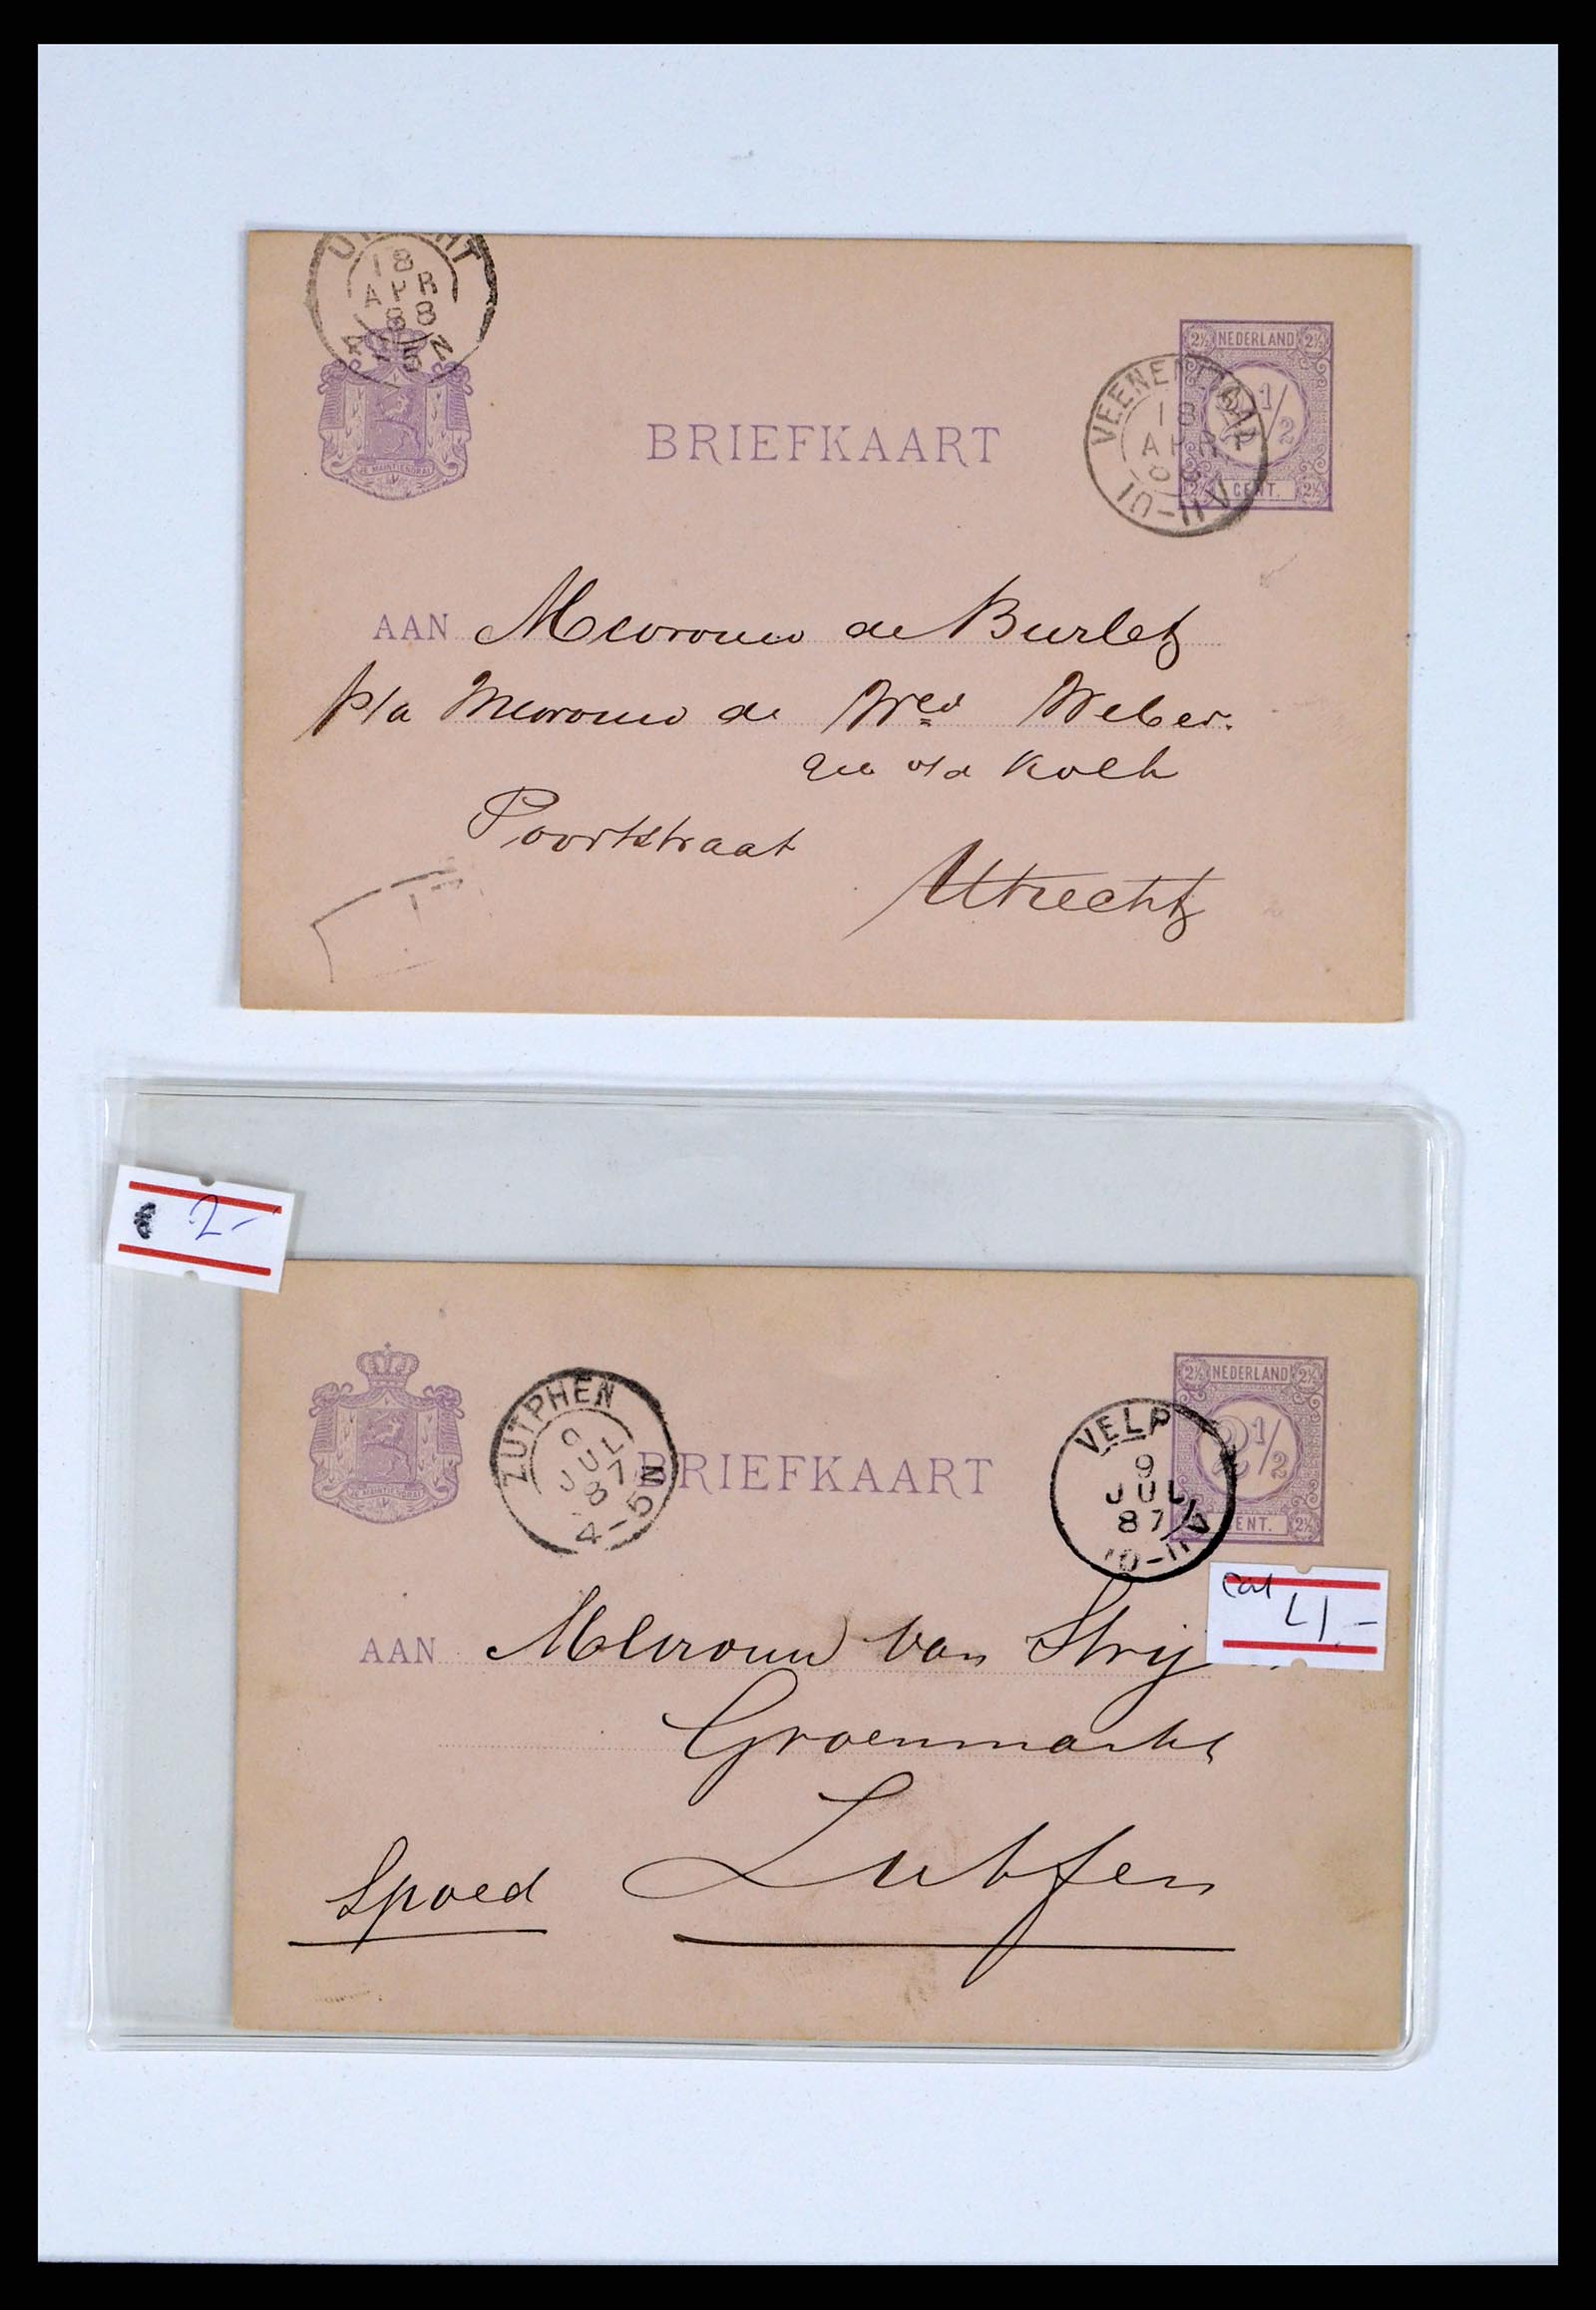 UTRECHT
18
APR
88
4-5N
NEDERLAND
2½ 2½
2 1/2
CENT.
2½ 2½
VEENENDAAL
18
APR
88
10-11V
JE MAINTIENDRAI
BRIEFKAART
AAN Mevrouw de Burlet
p/a Mevrouw de Wed Weber.
geb v/d Kolk
Poortstraat
Utrecht
€ 2-
NEDERLAND
2½ 2½
2 1/2
CENT.
2½
ZUTPHEN
9 JUL
87
4-5N
VELP
9
JUL
87
10-11V
JE MAINTIENDRAI
BRIEFKAART
cat
4,-
AAN Mevrouw van Strij
Groenmarkt
Zutfen
Spoed